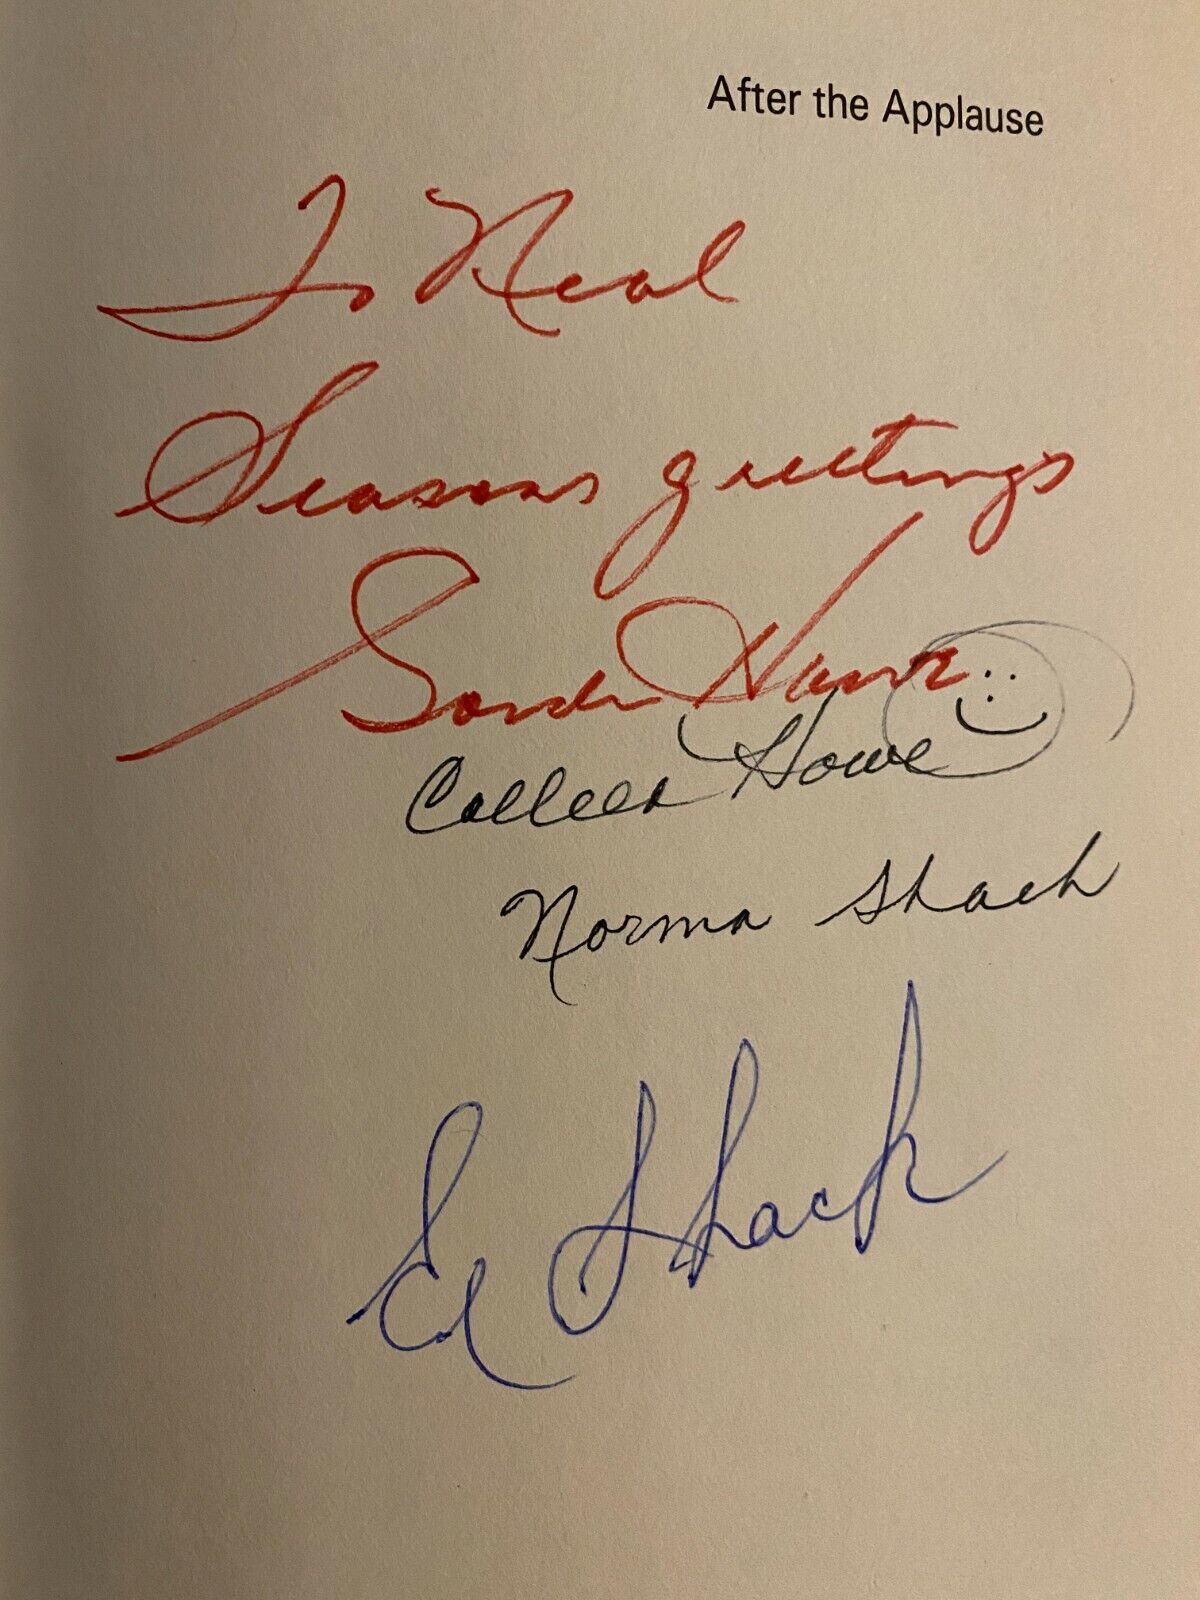 After the Applause
To Neal
Seasons greetings
Gordie Howe
Colleen Howe
Norma Shack
Ed Shack